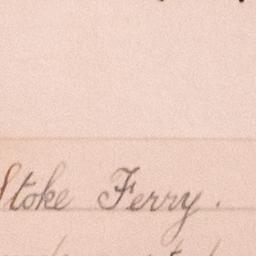 Stoke Ferry.